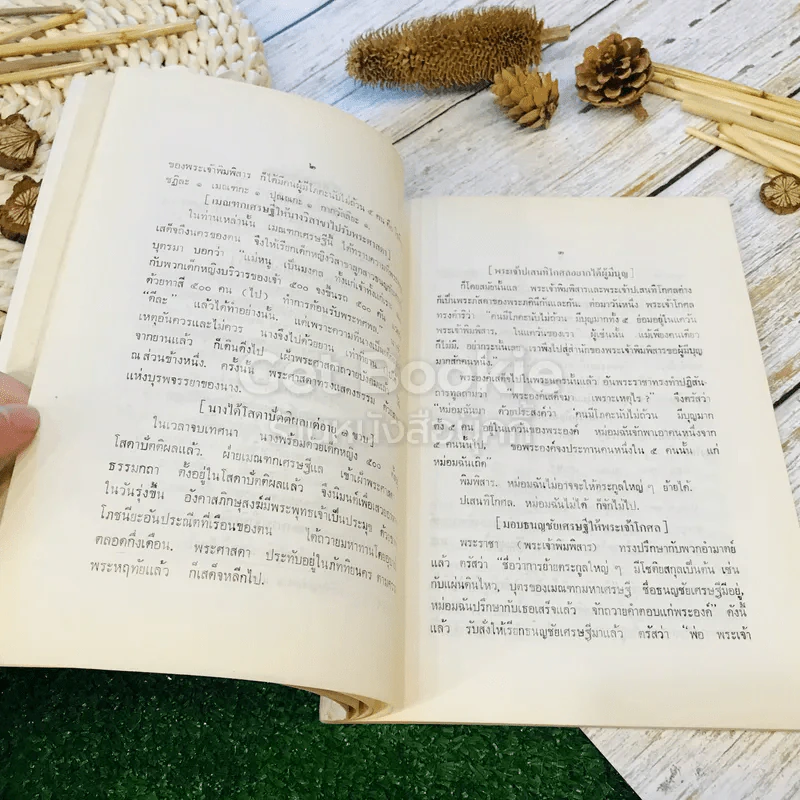 ๒
ของพระเจ้าพิมพิสาร ก็ได้มีคนผู้มีโภคะนับไม่ถ้วน ๕ คน คือ
ชฏิละ ๑ เมณฑกะ ๑ ปุณณกะ ๑ กากวัลลิยะ ๑
[เมณฑกเศรษฐีให้นางวิสาขาไปรับพระศาสดา]
ในท่านเหล่านั้น เมณฑกเศรษฐีนี้ ได้ทราบความที่
เสด็จถึงนครของตน จึงให้เรียกเด็กหญิงวิสาขาลูกสาวของ
บุตรมา บอกว่า "แม่หนู เป็นมงคล ทั้งแก่เจ้าทั้งแก่เรา
กับพวกเด็กหญิงบริวารของเจ้า ๕๐๐ ขึ้นรถ ๕๐๐ คัน
ด้วยทาสี ๕๐๐ คน (ไป) ทำการต้อนรับพระทศพล"
"ดีละ" แล้วได้ทำอย่างนั้น. แต่เพราะความที่นางเป็น
เหตุอันควรและไม่ควร นางจึงไปด้วยยาน เท่าที่
จากยานแล้ว ก็เดินดิ่งไป เฝ้าพระศาสดาถวายบังคมแล้ว
ณ ส่วนข้างหนึ่ง. ครั้งนั้น พระศาสดาทรงแสดงธรรม ด้วย
แห่งบุรพจรรยาของนาง.
[นางได้โสดาปัตติผลแต่อายุ ๗ ขวบ]
ในเวลาจบเทศนา นางพร้อมด้วยเด็กหญิง ๕๐๐
โสดาปัตติผลแล้ว. ฝ่ายเมณฑกเศรษฐีแล เข้าเฝ้าพระศาสดา
ธรรมกถา ตั้งอยู่ในโสดาปัตติผลแล้ว จึงนิมนต์เพื่อเสวย
ในวันรุ่งขึ้น อังคาสภิกษุสงฆ์มีพระพุทธเจ้าเป็นประมุข ด้วย
โภชนียะอันประณีตที่เรือนของตน ได้ถวายมหาทานโดย
ตลอดกึ่งเดือน. พระศาสดา ประทับอยู่ในภัททิยนคร ตาม
พระหฤทัยแล้ว ก็เสด็จหลีกไป.
๓
[พระเจ้าปเสนทิโกศลอยากได้ผู้มีบุญ]
ก็โดยสมัยนั้นแล พระเจ้าพิมพิสารและพระเจ้าปเสนทิโกศลต่าง
ก็เป็นพระภัสดาของพระภคินีกันและกัน. ต่อมาวันหนึ่ง พระเจ้าโกศล
ทรงดำริว่า "คนมีโภคะนับไม่ถ้วน มีบุญมากทั้ง ๕ ย่อมอยู่ในแคว้น
พระเจ้าพิมพิสาร, ในแคว้นของเรา ผู้เช่นนั้น แม้เพียงคนเดียว
ก็ไม่มี. อย่ากระนั้นเลย เราพึงไปสู่สำนักของพระเจ้าพิมพิสารขอผู้มีบุญ
มากสักคนหนึ่ง."
พระองค์เสด็จไปในพระนครนั้นแล้ว อันพระราชาทรงทำปฏิสัน-
ถารทูลถามว่า "พระองค์เสด็จมา เพราะเหตุไร ?" จึงตรัสว่า
"หม่อมฉันมา ด้วยประสงค์ว่า คนมีโภคะนับไม่ถ้วน มีบุญมาก
ทั้ง ๕ คน อยู่ในแคว้นของพระองค์ หม่อมฉันจักพาเอาคนหนึ่ง
จาก ๕ คนนั้นไป, ขอพระองค์จงประทานคนหนึ่งใน ๕ คนนั้น แก่
หม่อมฉันเถิด"
พิมพิสาร. หม่อมฉันไม่อาจจะให้ตระกูลใหญ่ ๆ ย้ายได้.
ปเสนทิโกศล. หม่อมฉันไม่ได้ ก็จักไม่ไป.
[มอบธนญชัยเศรษฐีให้พระเจ้าโกศล]
พระราชา (พระเจ้าพิมพิสาร) ทรงปรึกษากับพวกอำมาตย์
แล้ว ตรัสว่า "ชื่อว่าการย้ายตระกูลใหญ่ ๆ มีโชติสกุลเป็นต้น เช่น
กับแผ่นดินไหว, บุตรของเมณฑกมหาเศรษฐี ชื่อธนญชัยเศรษฐีมีอยู่,
หม่อมฉันปรึกษากับเธอเสร็จแล้ว จักถวายคำตอบแก่พระองค์" ดังนี้
แล้ว รับสั่งให้เรียกธนญชัยเศรษฐีมาแล้ว ตรัสว่า "พ่อ พระเจ้า
Got Bookie
ร้านหนังสือเก่า